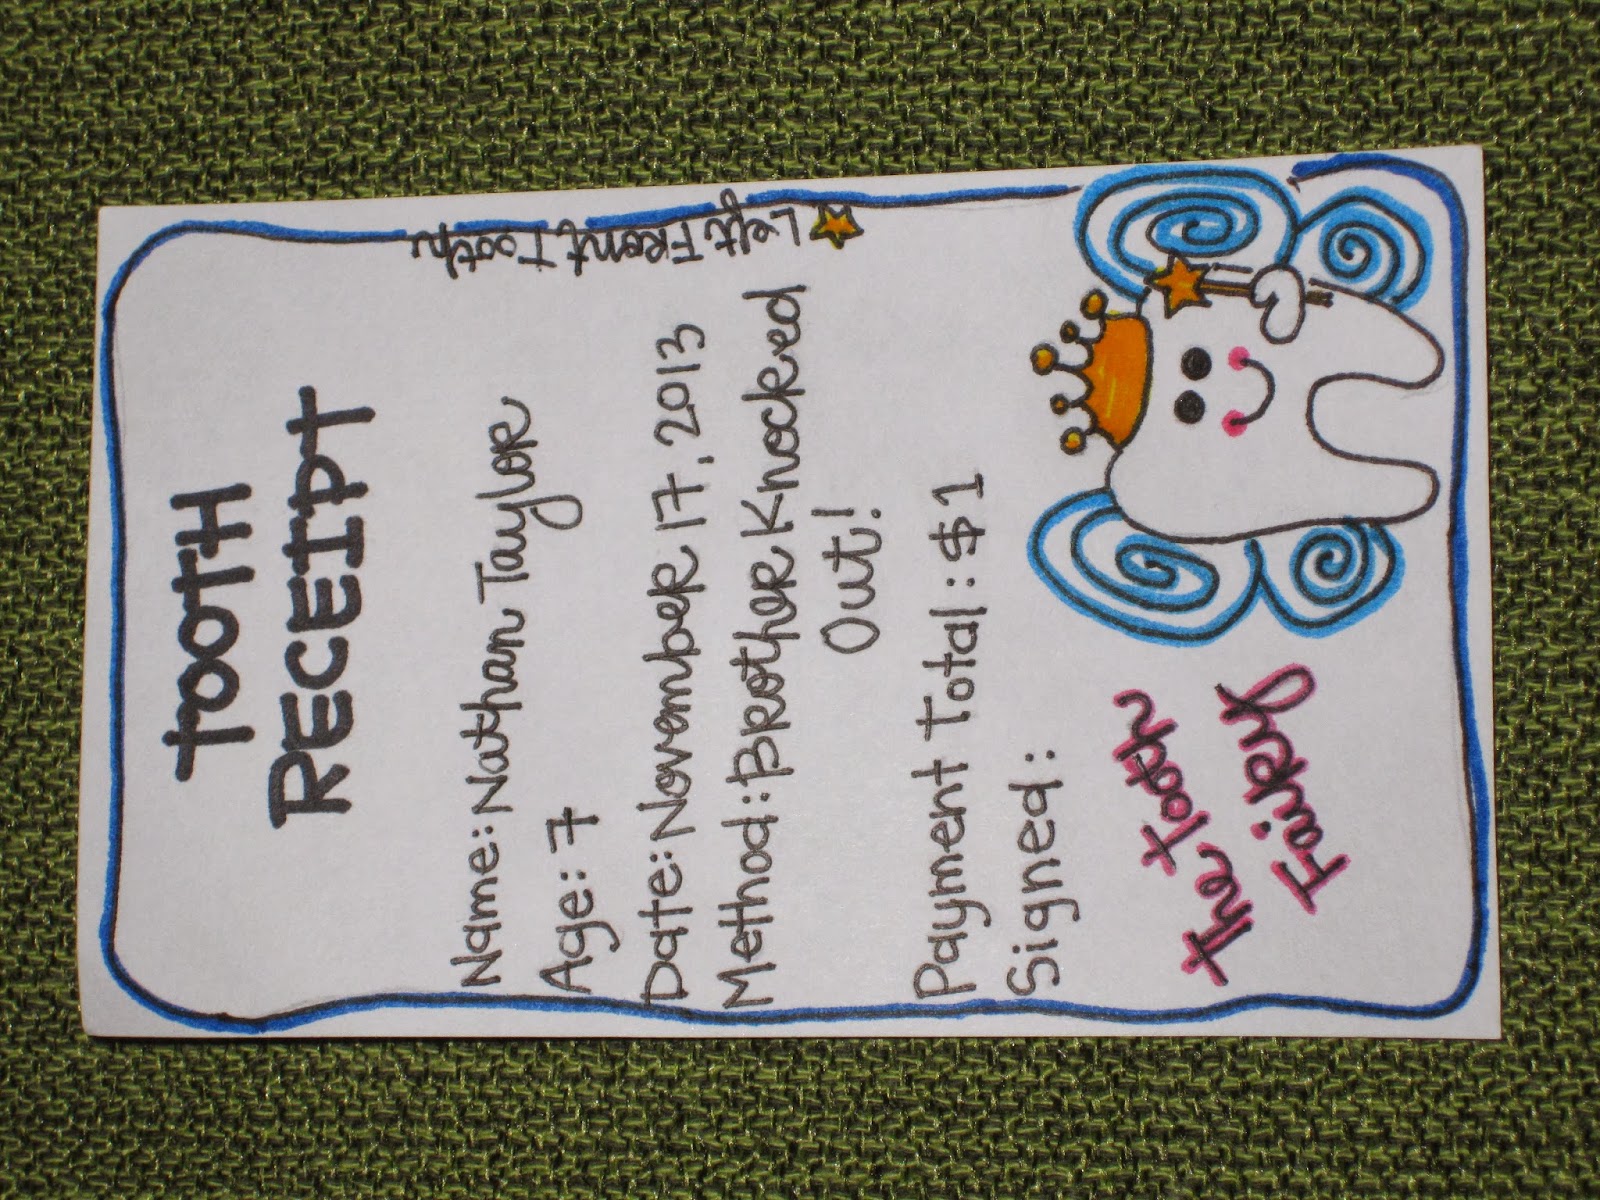 TOOTH
RECEIPT
Name: Nathan Taylor
Age: 7
Date: November 17, 2013
Method: Brother Knocked
Out!
Payment Total: $1
Signed:
The Tooth
Fairy
Left Front Tooth